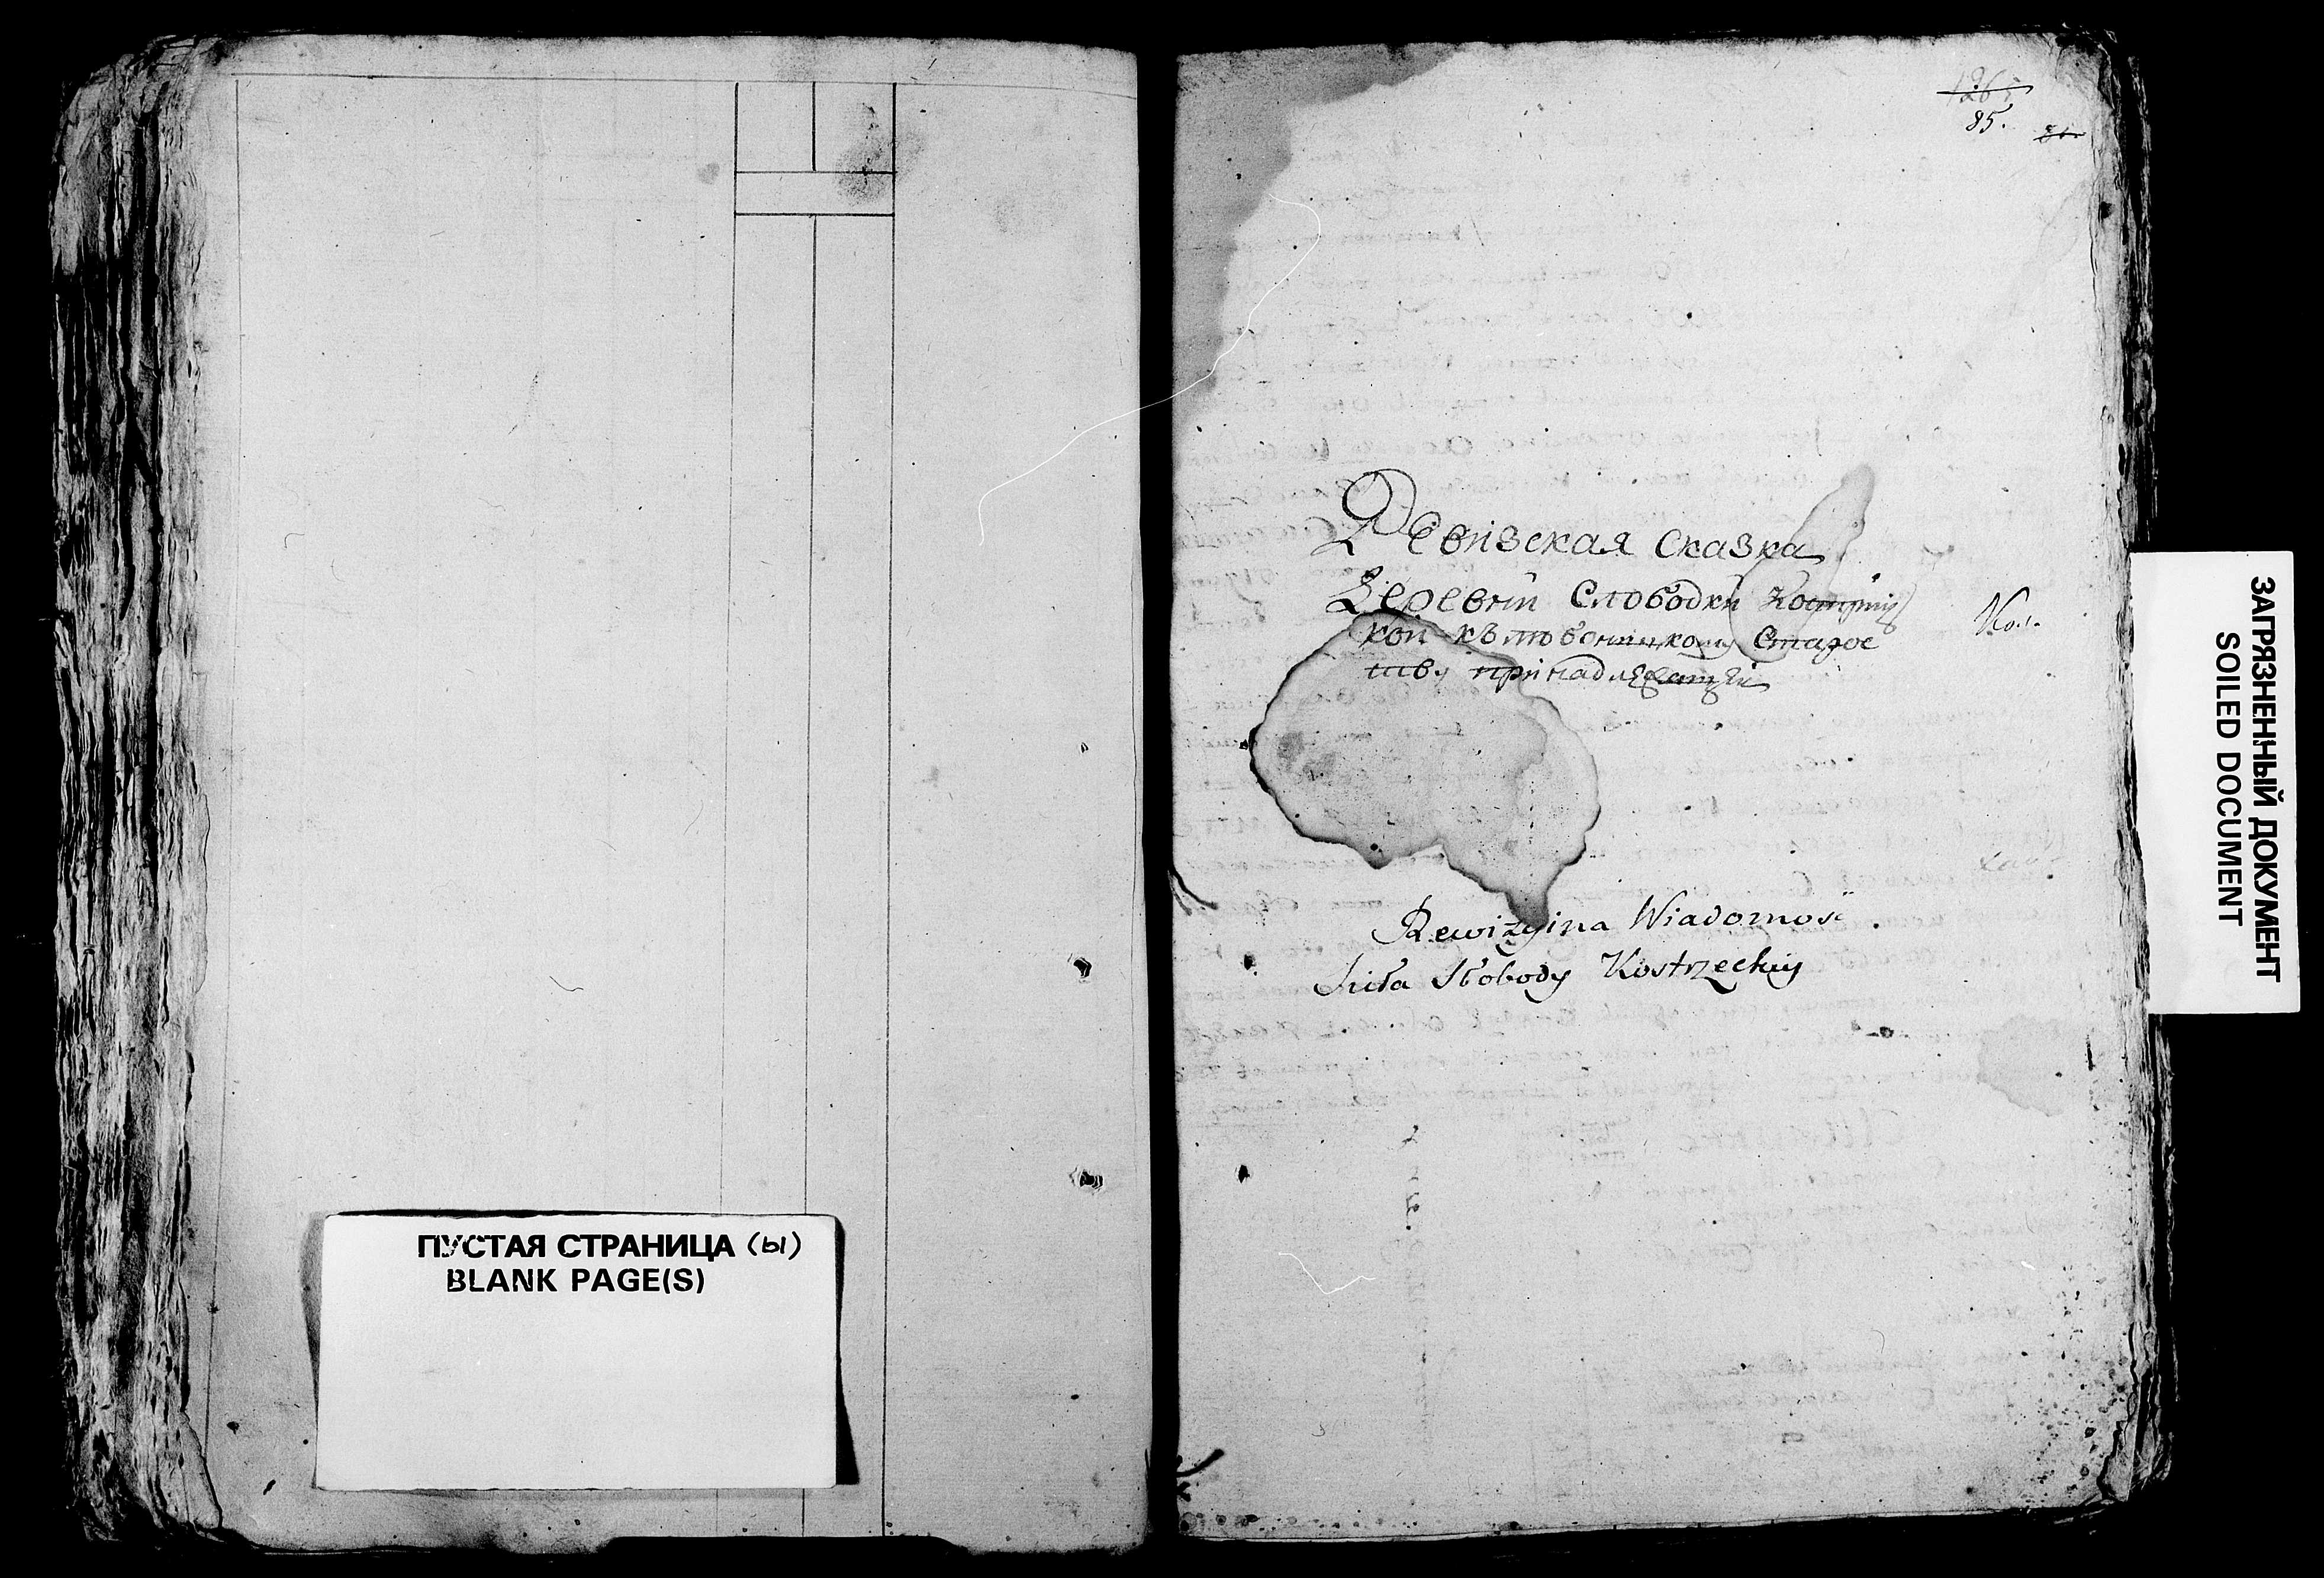 ПУСТАЯ СТРАНИЦА (ы)
BLANK PAGE(S)
85.
Ревизская сказка
Деревни Слободки
кой къ Старос
тву принадлежащей
Rewizyina Wiadomość
Siła Słobody Kostrzeckiy
ЗАГРЯЗНЕННЫЙ ДОКУМЕНТ
SOILED DOCUMENT